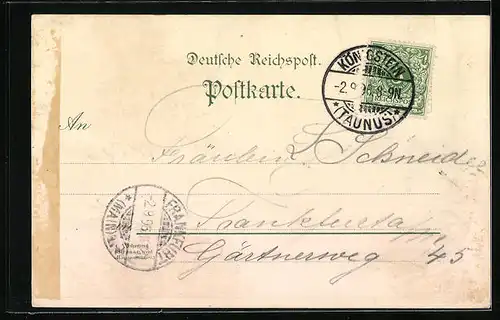 Deutsche Reichspost.
Postkarte.
KÖNIGSTEIN
-2.9.96.8-9N.
*(TAUNUS)*
An
Fräulein S. Schneider
Frankfurt a/M
Gärtnerweg 45
FRANKFURT
-2.9.96
*(MAIN)*